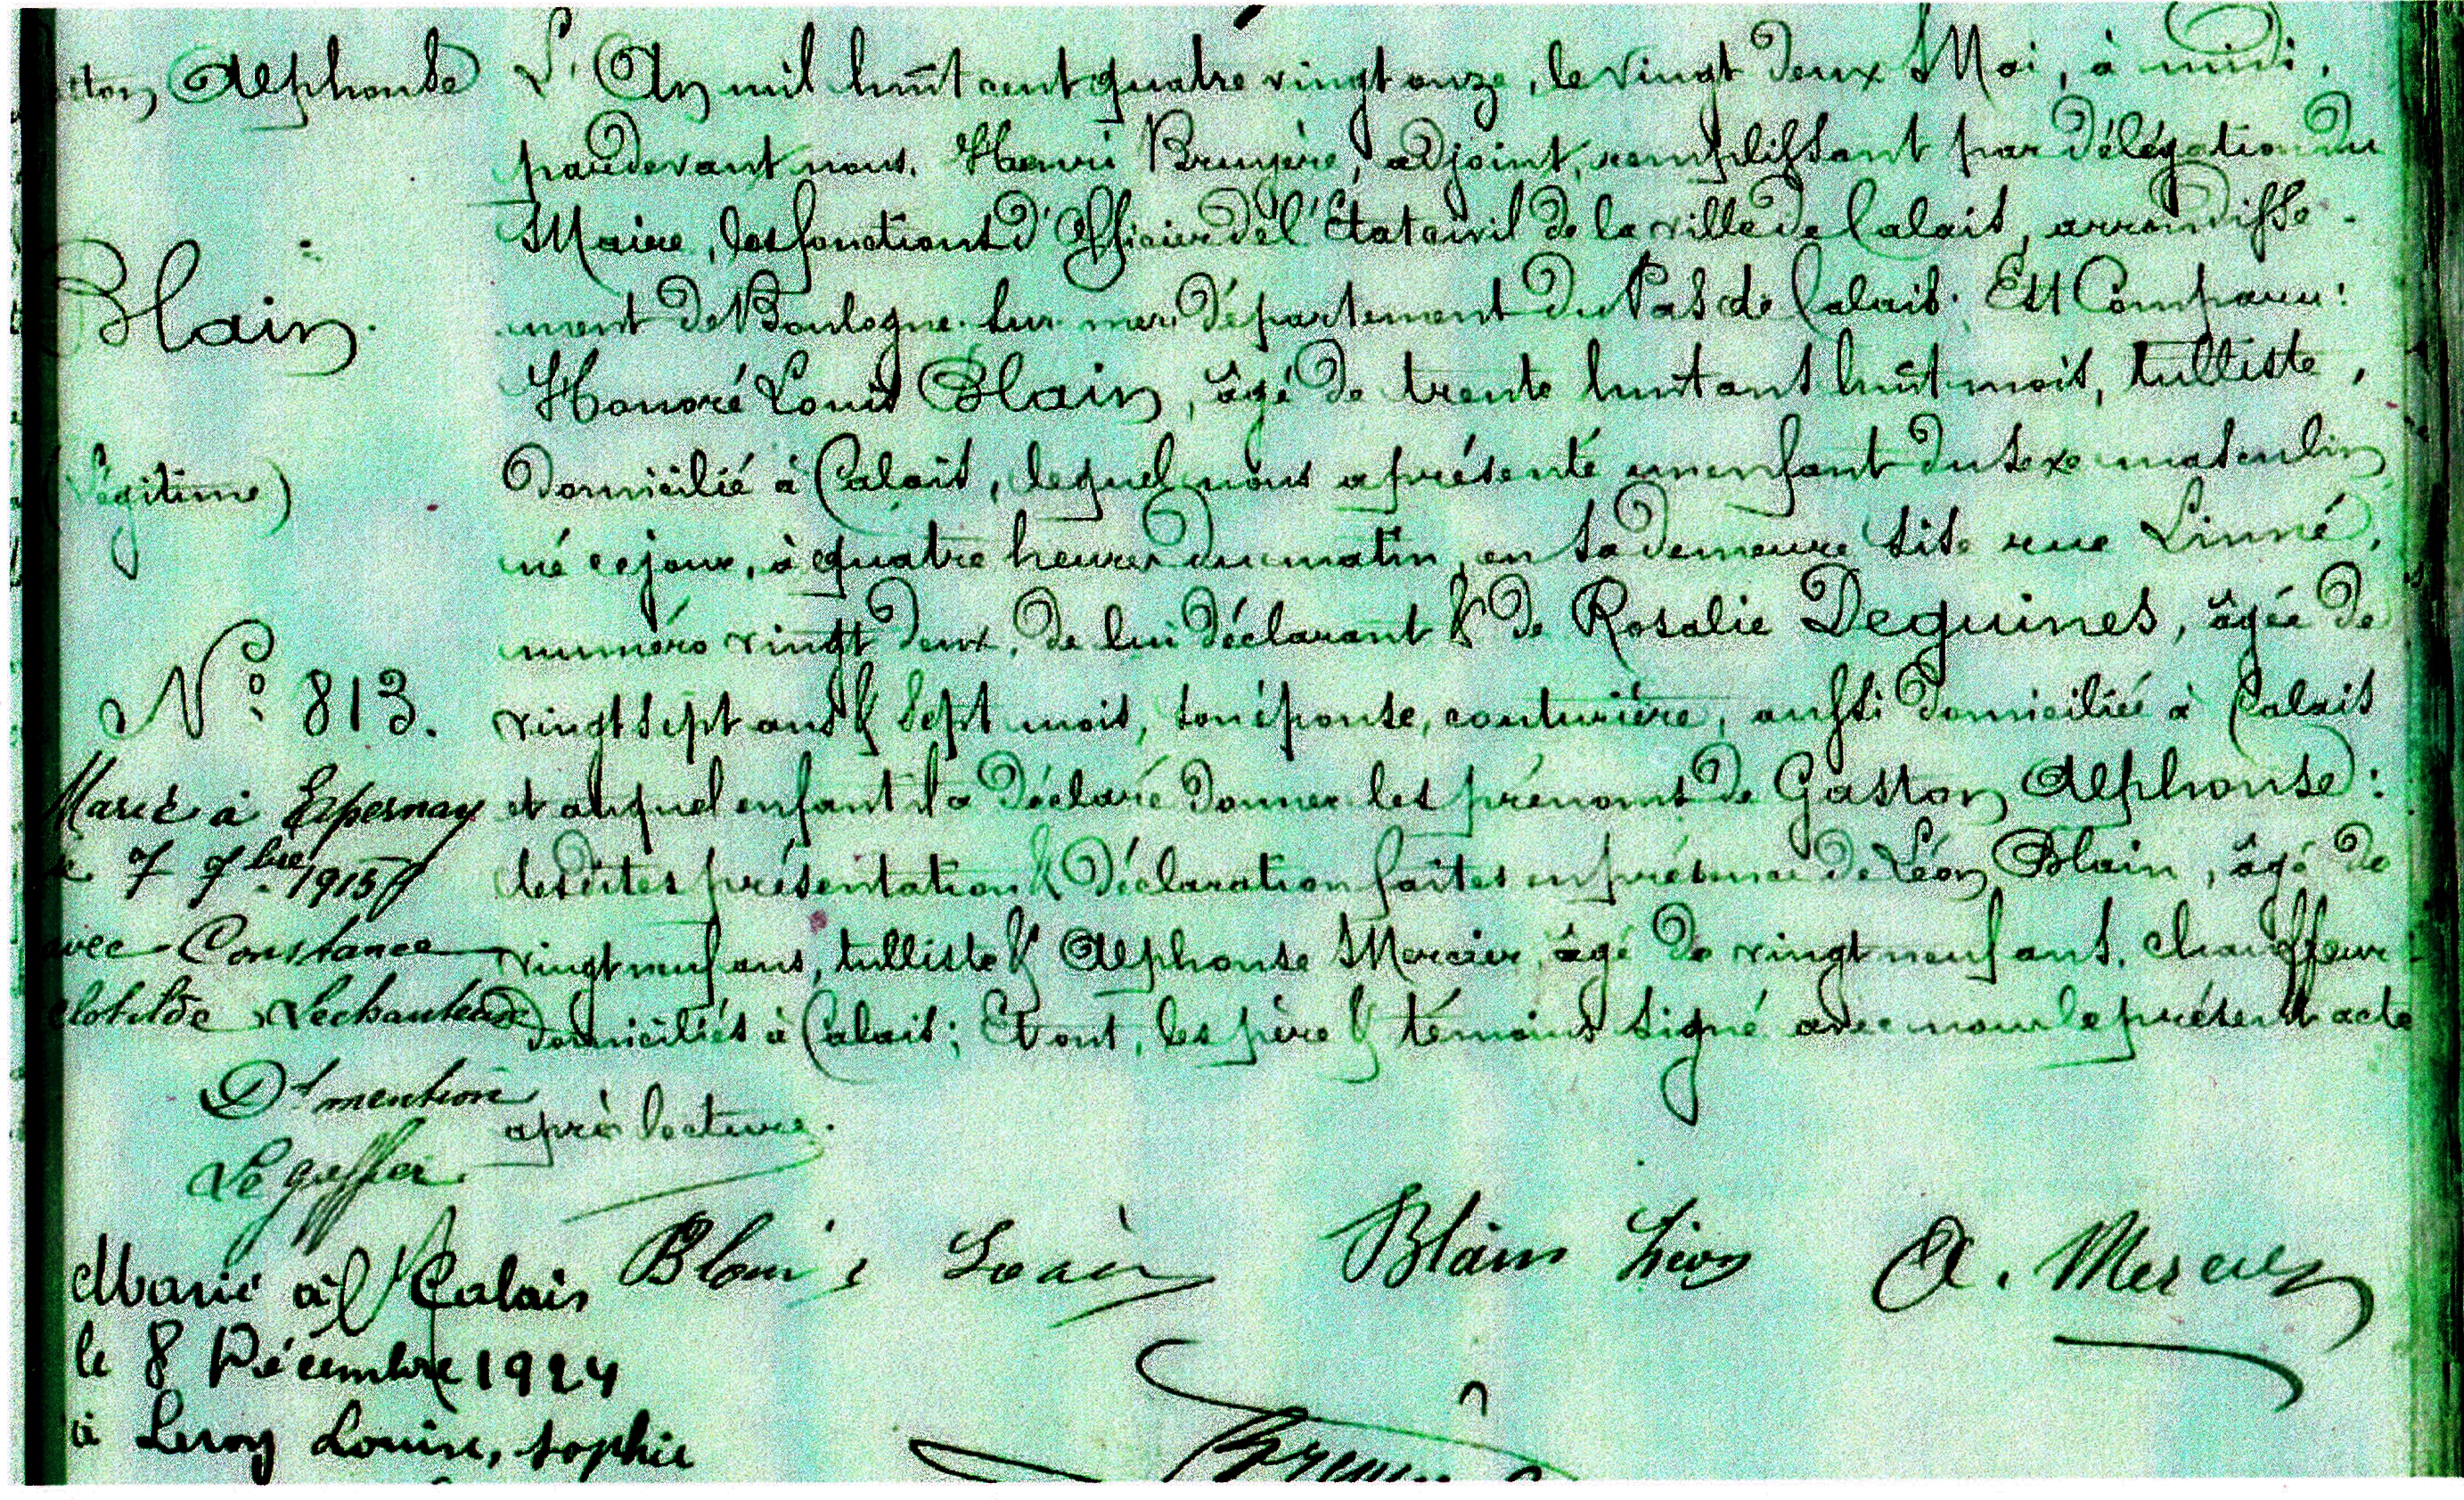 Alphonse
Blain.
(Légitime)
N° 813.
Marié à Epernay
le 7 9bre 1915
avec Constance
Clotilde
Dt mention
Le greffier
Marié à Calais
le 8 Décembre 1924
à Leroy Louise, Sophie
L'An mil huit cent quatre vingt onze, le vingt deux Mai, à midi,
pardevant nous, Henri Bruyère, adjoint, remplissant par délégation du
Maire, les fonctions d'Officier de l'Etat civil de la ville de Calais, arrondisse-
ment de Boulogne-sur-mer, département du Pas de Calais. Est Comparu:
Honoré Louis Blain, âgé de trente huit ans huit mois, tulliste,
domicilié à Calais, lequel nous a présenté un enfant du sexe masculin
né ce jour, à quatre heures du matin, en sa demeure sise rue Linné,
numéro vingt deux, de lui déclarant & de Rosalie Deguines, âgée de
vingt sept ans & sept mois, son épouse, couturière, aussi domiciliée à Calais
et auquel enfant il a déclaré donner les prénoms de Gaston Alphonse:
lesdites présentation & déclaration faites en présence de Léon Blain, âgé de
vingt neuf ans, tulliste & Alphonse Mercier, âgé de vingt neuf ans, chauffeur
domiciliés à Calais; Et ont, les père & témoins signé avec nous le présent acte
après lecture.
Blain Léon A. Mercier